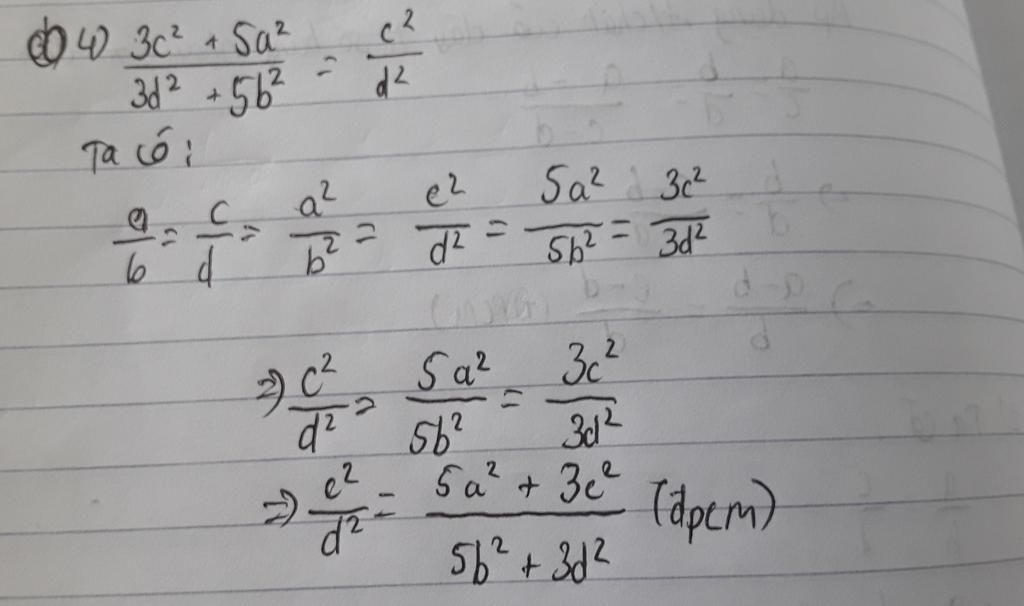 4) (3c² + 5a²)/(3d² + 5b²) = c²/d²
Ta có:
a/b = c/d = a²/b² = c²/d² = 5a²/5b² = 3c²/3d²
⇒ c²/d² = 5a²/5b² = 3c²/3d²
⇒ c²/d² = (5a² + 3c²)/(5b² + 3d²) (đpcm)